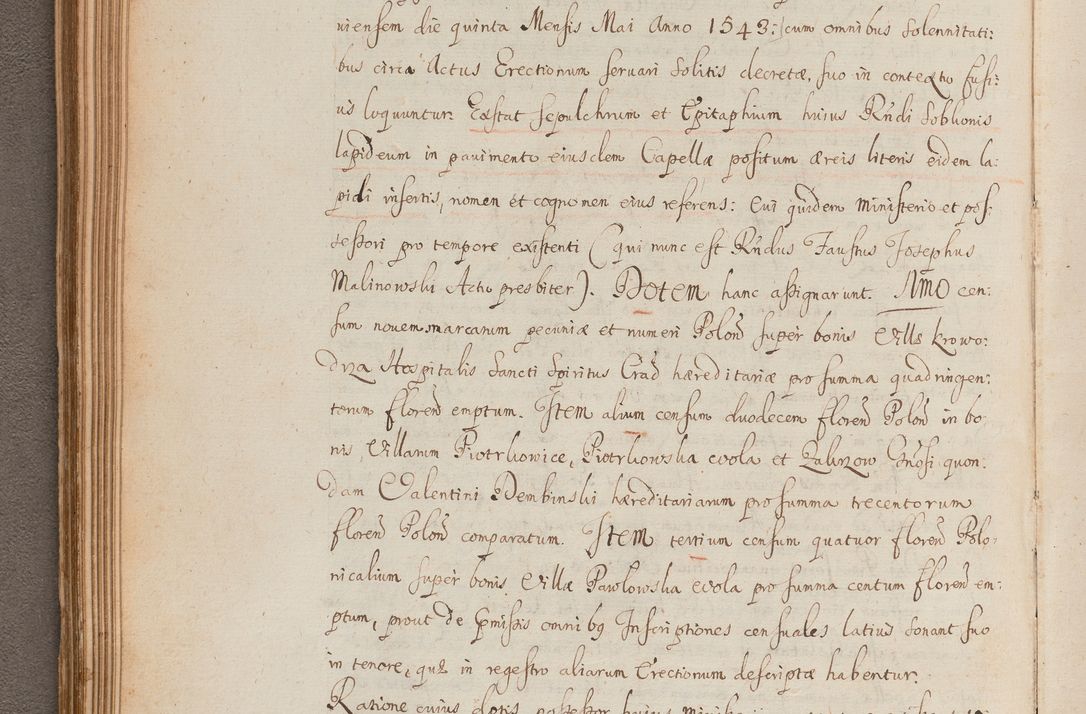 viensem die quinta Mensis Mai Anno 1543: cum omnibus Solennitati:
bus circa Actus Erectionum servari Solitis decretæ, suo in contextu fusi:
us loquuntur. Exstat sepulchrum et Epitaphium huius Rndi Soblionis
lapideum in pavimento eiusdem Capellæ positum æreis literis eidem la:
pidi insertis, nomen et cognomen eius referens: Cui quidem Ministerio et pos:
sessori pro tempore existenti (qui nunc est Rndus Faustus Josephus
Malinowski Actu presbiter). Dotem hanc assignarunt. Imo cen:
sum novem marcarum pecuniæ et numeri Polon super bonis Villæ Krowo:
drza Hospitalis Sancti Spiritus Crac hæreditariæ pro summa quadringen:
torum floren emptum. Item alium censum duodecem floren Polon in bo
nis Villarum Piotrkowice, Piotrkowska wola et Zakrzow Gnosi quon:
dam Valentini Dembinski hæreditariarum pro summa trecentorum
floren Polon comparatum. Item tertium censum quatuor floren Polo:
nicalium super bonis Villæ Pawlowska wola pro summa centum floren em:
ptum, prout de præmissis omnibq Inscriptiones censuales latius Sonant suo
in tenore, quæ in regestro aliarum Erectionum descriptæ habentur.
Ratione cuius dotis possessor huius